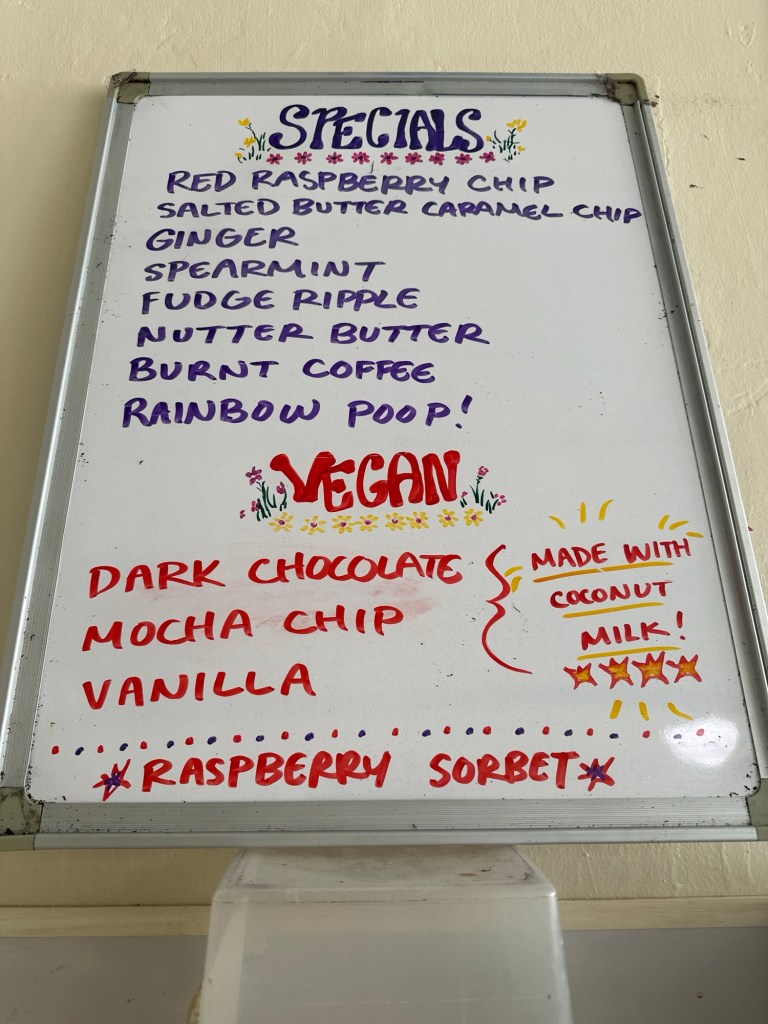 SPECIALS
RED RASPBERRY CHIP
SALTED BUTTER CARAMEL CHIP
GINGER
SPEARMINT
FUDGE RIPPLE
NUTTER BUTTER
BURNT COFFEE
RAINBOW POOP!
VEGAN
DARK CHOCOLATE
MOCHA CHIP
VANILLA
MADE WITH
COCONUT
MILK!
RASPBERRY SORBET